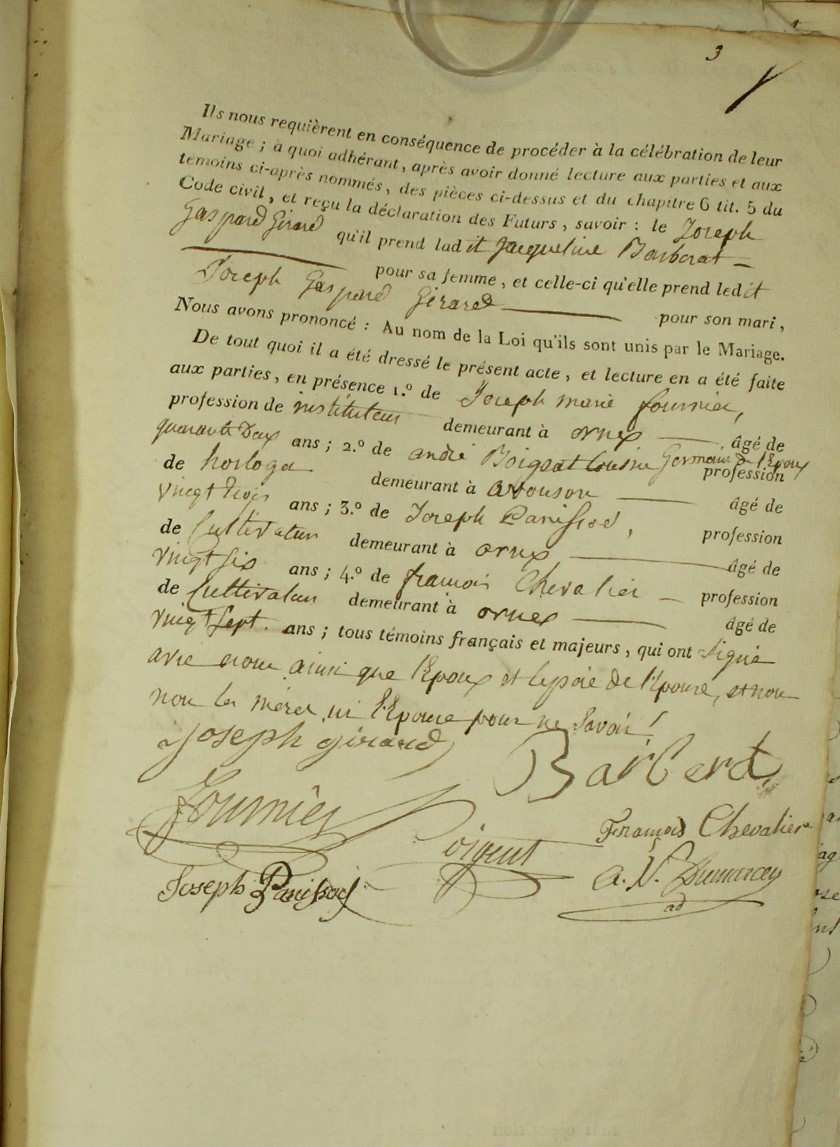 3
Ils nous requièrent en conséquence de procéder à la célébration de leur
Mariage ; à quoi adhérant, après avoir donné lecture aux parties et aux
témoins ci-après nommés, des pièces ci-dessus et du chapitre 6 tit. 5 du
Code civil, et reçu la déclaration des Futurs, savoir : le Joseph
Gaspard Girard qu'il prend ladit Jacqueline Barberat
pour sa femme, et celle-ci qu'elle prend ledit
Joseph Gaspard Girard pour son mari,
Nous avons prononcé : Au nom de la Loi qu'ils sont unis par le Mariage.
De tout quoi il a été dressé le présent acte, et lecture en a été faite
aux parties, en présence 1.º de Joseph marie fournier,
profession de instituteur demeurant à ornex âgé de
quarante Deux ans ; 2.º de andré Cousin Germain de l'Epoux profession
de horloger demeurant à avouson âgé de
vingt trois ans ; 3.º de Joseph Panissod, profession
de Cultivateur demeurant à ornex âgé de
vingt six ans ; 4.º de francois Chevalier profession
de Cultivateur demeurant à ornex âgé de
vingt Sept ans ; tous témoins français et majeurs, qui ont Signé
avec nous ainsi que l'Epoux et le père de l'Epouse, et non
les mères, ni l'Epouse pour ne Savoir !
Joseph girard
Barberat
Fournier
François Chevalier
Joseph Panissod
a. N.